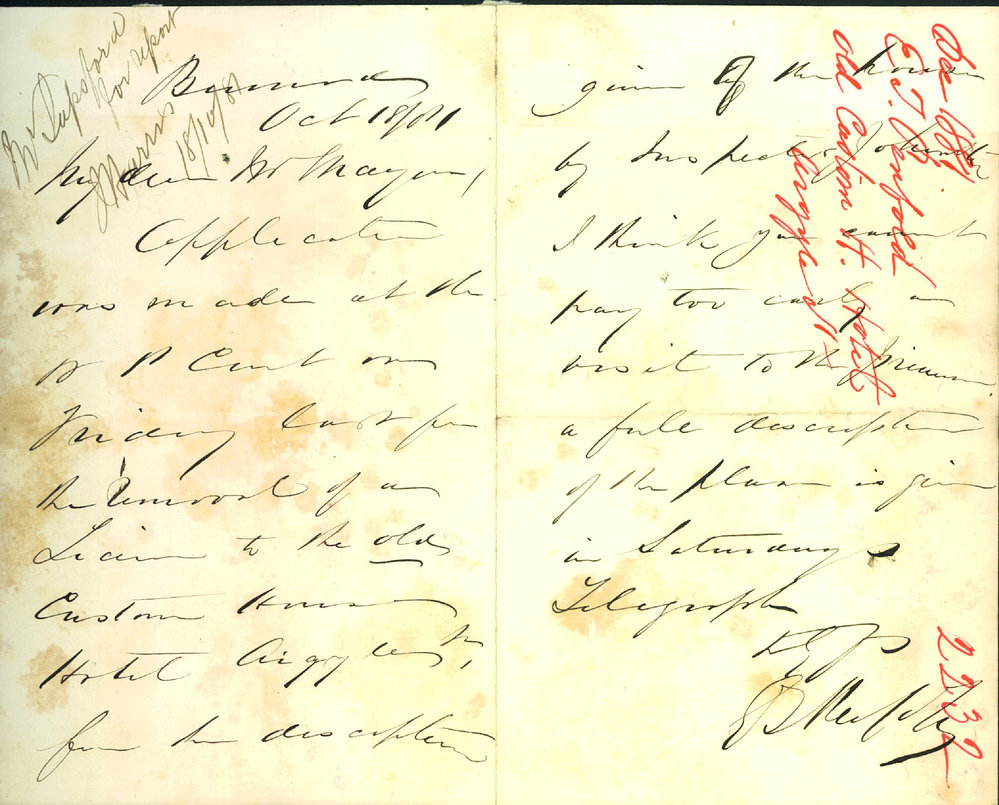 Mr Tupsford
for report
J Harris
18/10/81
Burwood
Oct 18/81
My dear Mr Mayor,
Application
was made at the
W P Court on
Friday last for
the removal of a
License to the old
Custom House
Hotel Argyle St,
from the description
given of the house
by Inspector Johnson
I think you cannot
pay too early a
visit to the
a full description
of the place is given
in Saturdays
Telegraph
Dec 1881
E. J. Penfold
Old Custom H. Hotel
Argyle St
2232